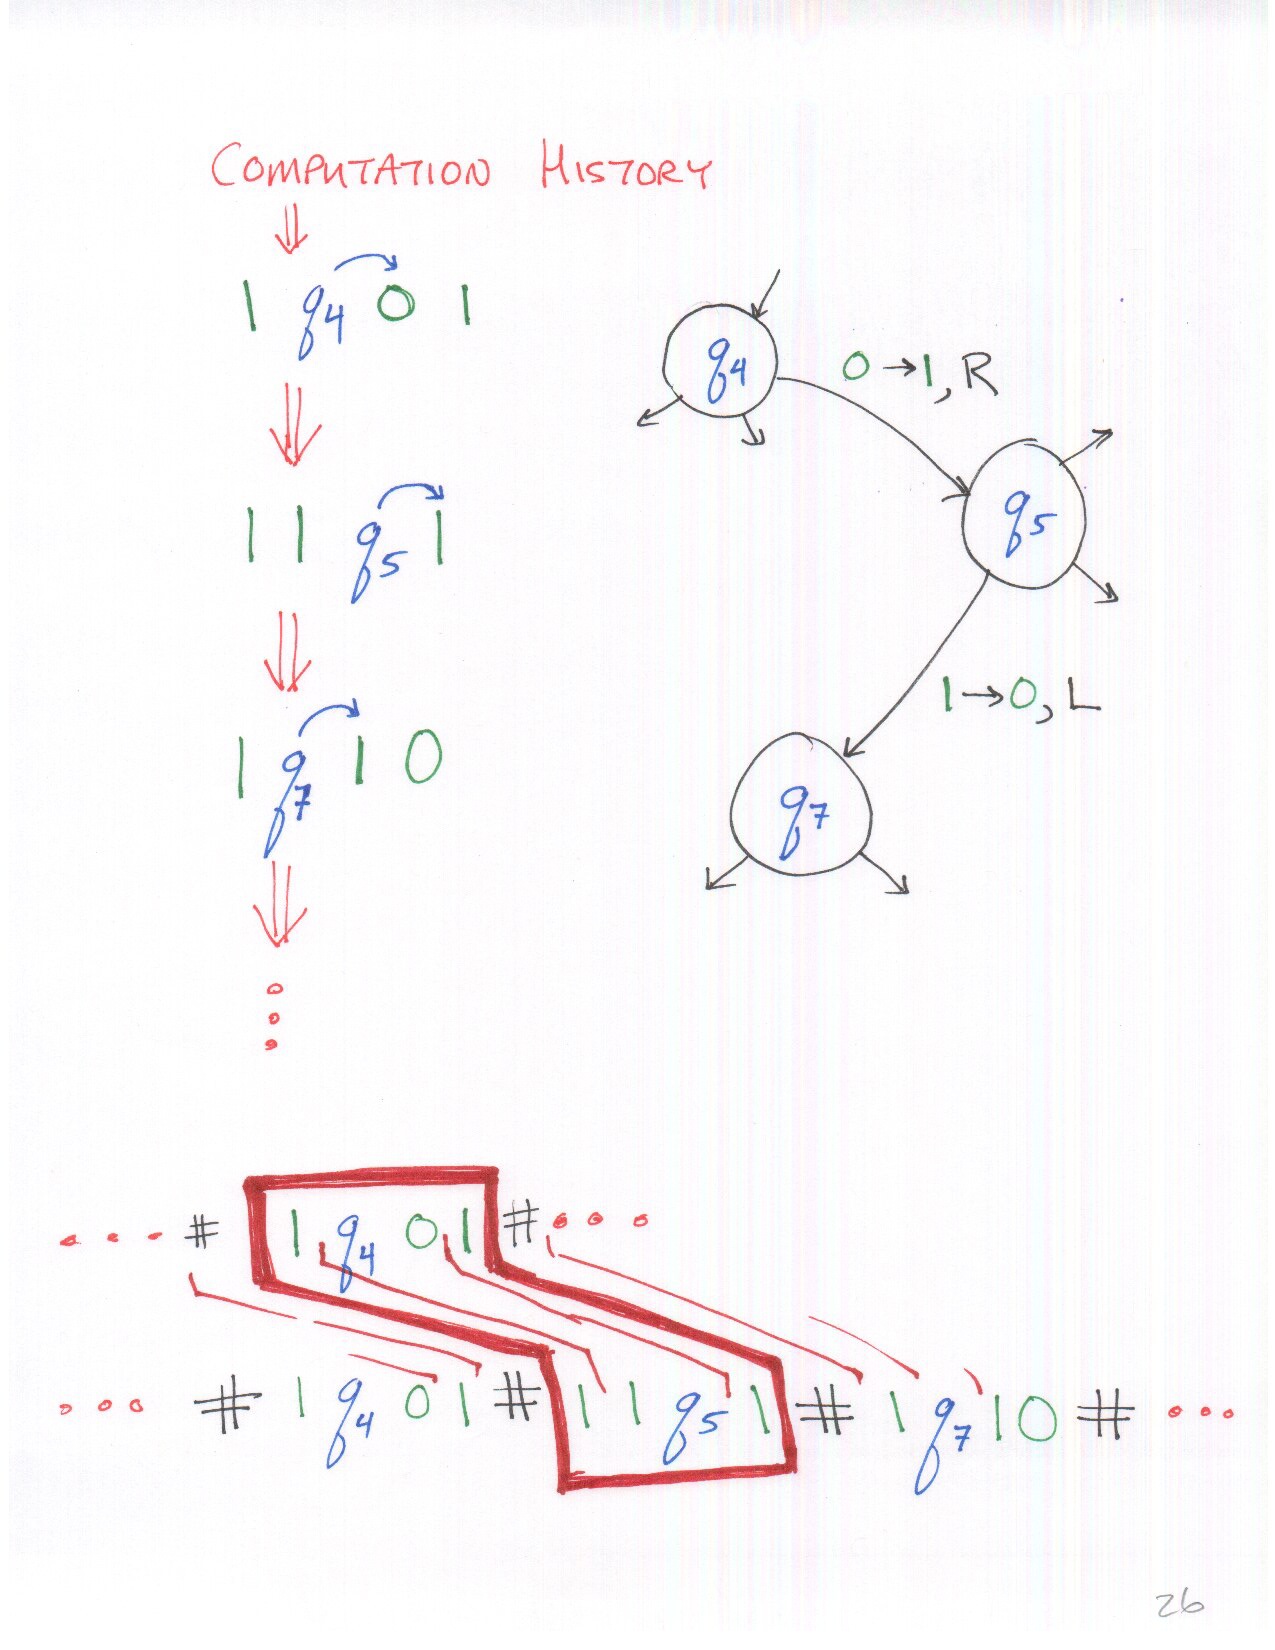 COMPUTATION HISTORY
1 q4 0 1
q4
0→1, R
1 1 q5 1
q5
1→0, L
1 q7 1 0
q7
# 1 q4 0 1 #
# 1 q4 0 1 # 1 1 q5 1 # 1 q7 1 0 #
26